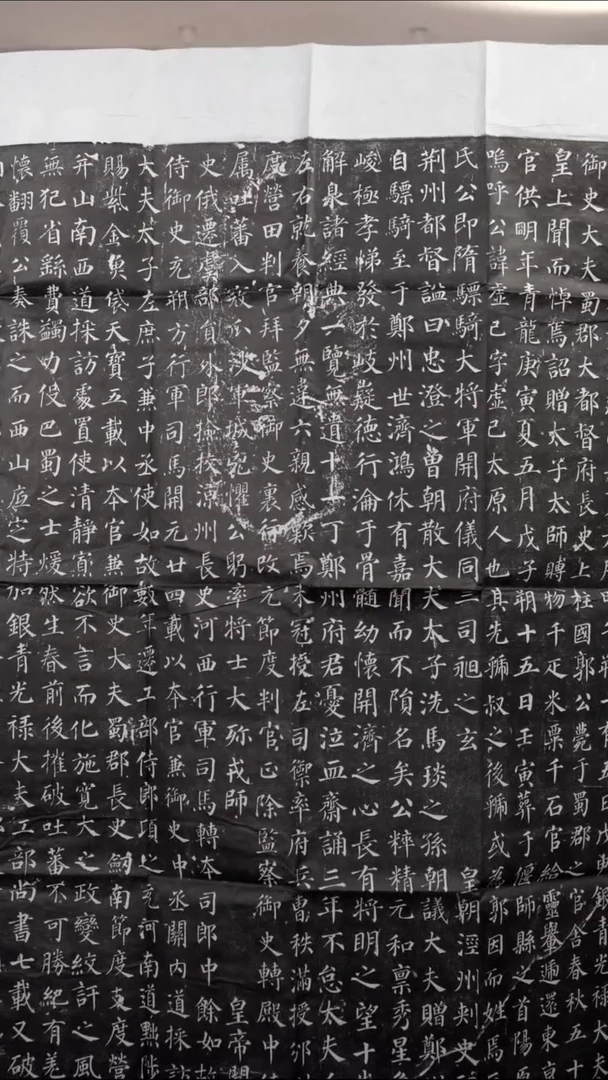 御史大夫蜀郡大都督府長史上柱國郭公薨于蜀郡之官舍春秋五十
皇上聞而悼焉詔贈太子太師賻物千疋米粟千石官給靈轝遞還東京
官供明年青龍庚寅夏五月戊子朔十五日壬寅葬于偃師縣之首陽原
嗚呼公諱虛己字虛己太原人也其先虢叔之後虢或為郭因而姓焉
氏公即隋驃騎大將軍開府儀同三司昶之玄 皇朝涇州刺史
荊州都督謚曰忠澄之曾朝散大夫太子洗馬琰之孫朝議大夫贈鄭
自驃騎至于鄭州世濟鴻休有嘉聞而不隕名矣公粹精元和禀秀星
峻極孝悌發於岐嶷德行淪于骨髓幼懷開濟之心長有將明之望十
解泉諸經典一覽無遺十一丁鄭州府君憂泣血齋誦三年不怠太夫
左右就養朝夕無違六親感歎焉未冠授左司禦率府兵曹秩滿授邠
度營田判官拜監察御史裏行改元節度判官正除監察御史轉殿中
屬吐蕃入寇 公躬率將士大殄戎師 皇帝
史俄遷虞部員外郎檢校涼州長史河西行軍司馬轉本司郎中餘如
侍御史充朔方行軍司馬開元廿四載以本官兼御史中丞關內道採訪
大夫太子左庶子兼中丞使如故數年遷工部侍郎頃之充河南道黜陟
賜紫金魚袋天寶五載以本官兼御史大夫蜀郡長史劍南節度支度營
并山南西道採訪處置使清靜寡欲不言而化施寬大之政變絞訐之風
無犯省繇費蠲力役巴蜀之士煖然生春前後摧破吐蕃不可勝紀有羌
懷翻覆公奏誅之而西山底定特加銀青光祿大夫工部尚書七載又破